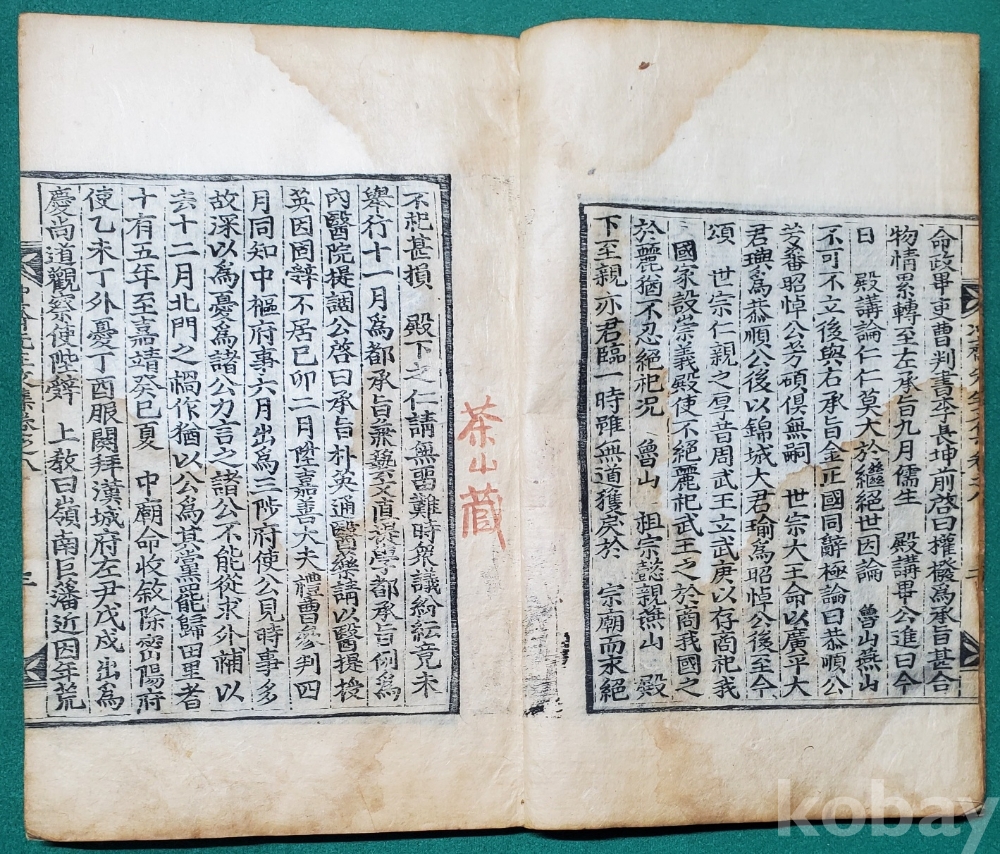 命政畢吏曹判書李長坤前啓曰權橃爲承旨甚合
物情累轉至左承旨九月儒生 殿講畢公進曰今
日 殿講論仁仁莫大於繼絕世因論 魯山燕山
不可不立後與右承旨金正國同辭極論曰恭順公
芳蕃昭悼公芳碩俱無嗣 世宗大王命以廣平大
君璵爲恭順公後以錦城大君瑜爲昭悼公後至今
頌 世宗仁親之厚昔周武王立武庚以存商祀我
國家設崇義殿使不絕麗祀武王之於商我國之
於麗猶不忍絕祀況 魯山 祖宗懿親燕山 殿
下至親亦君臨一時雖無道獲戾於 宗廟而永絕
茶山藏
不祀甚損 殿下之仁請無留難時衆議紛紜竟未
舉行十一月爲都承旨兼藝文直提學都承旨例爲
內醫院提調公啓曰承旨朴英通醫藥請以醫提授
英因固辭不居己卯二月陞嘉善大夫禮曹參判四
月同知中樞府事六月出爲三陟府使公見時事多
故深以爲憂爲諸公力言之諸公不能從求外補以
去十二月北門之禍作猶以公爲其黨罷歸田里者
十有五年至嘉靖癸巳夏 中廟命收敘除密陽府
使乙未丁外憂丁酉服闋拜漢城府左尹戊戌出爲
慶尚道觀察使陛辭 上教曰嶺南巨藩近因年荒
kobay